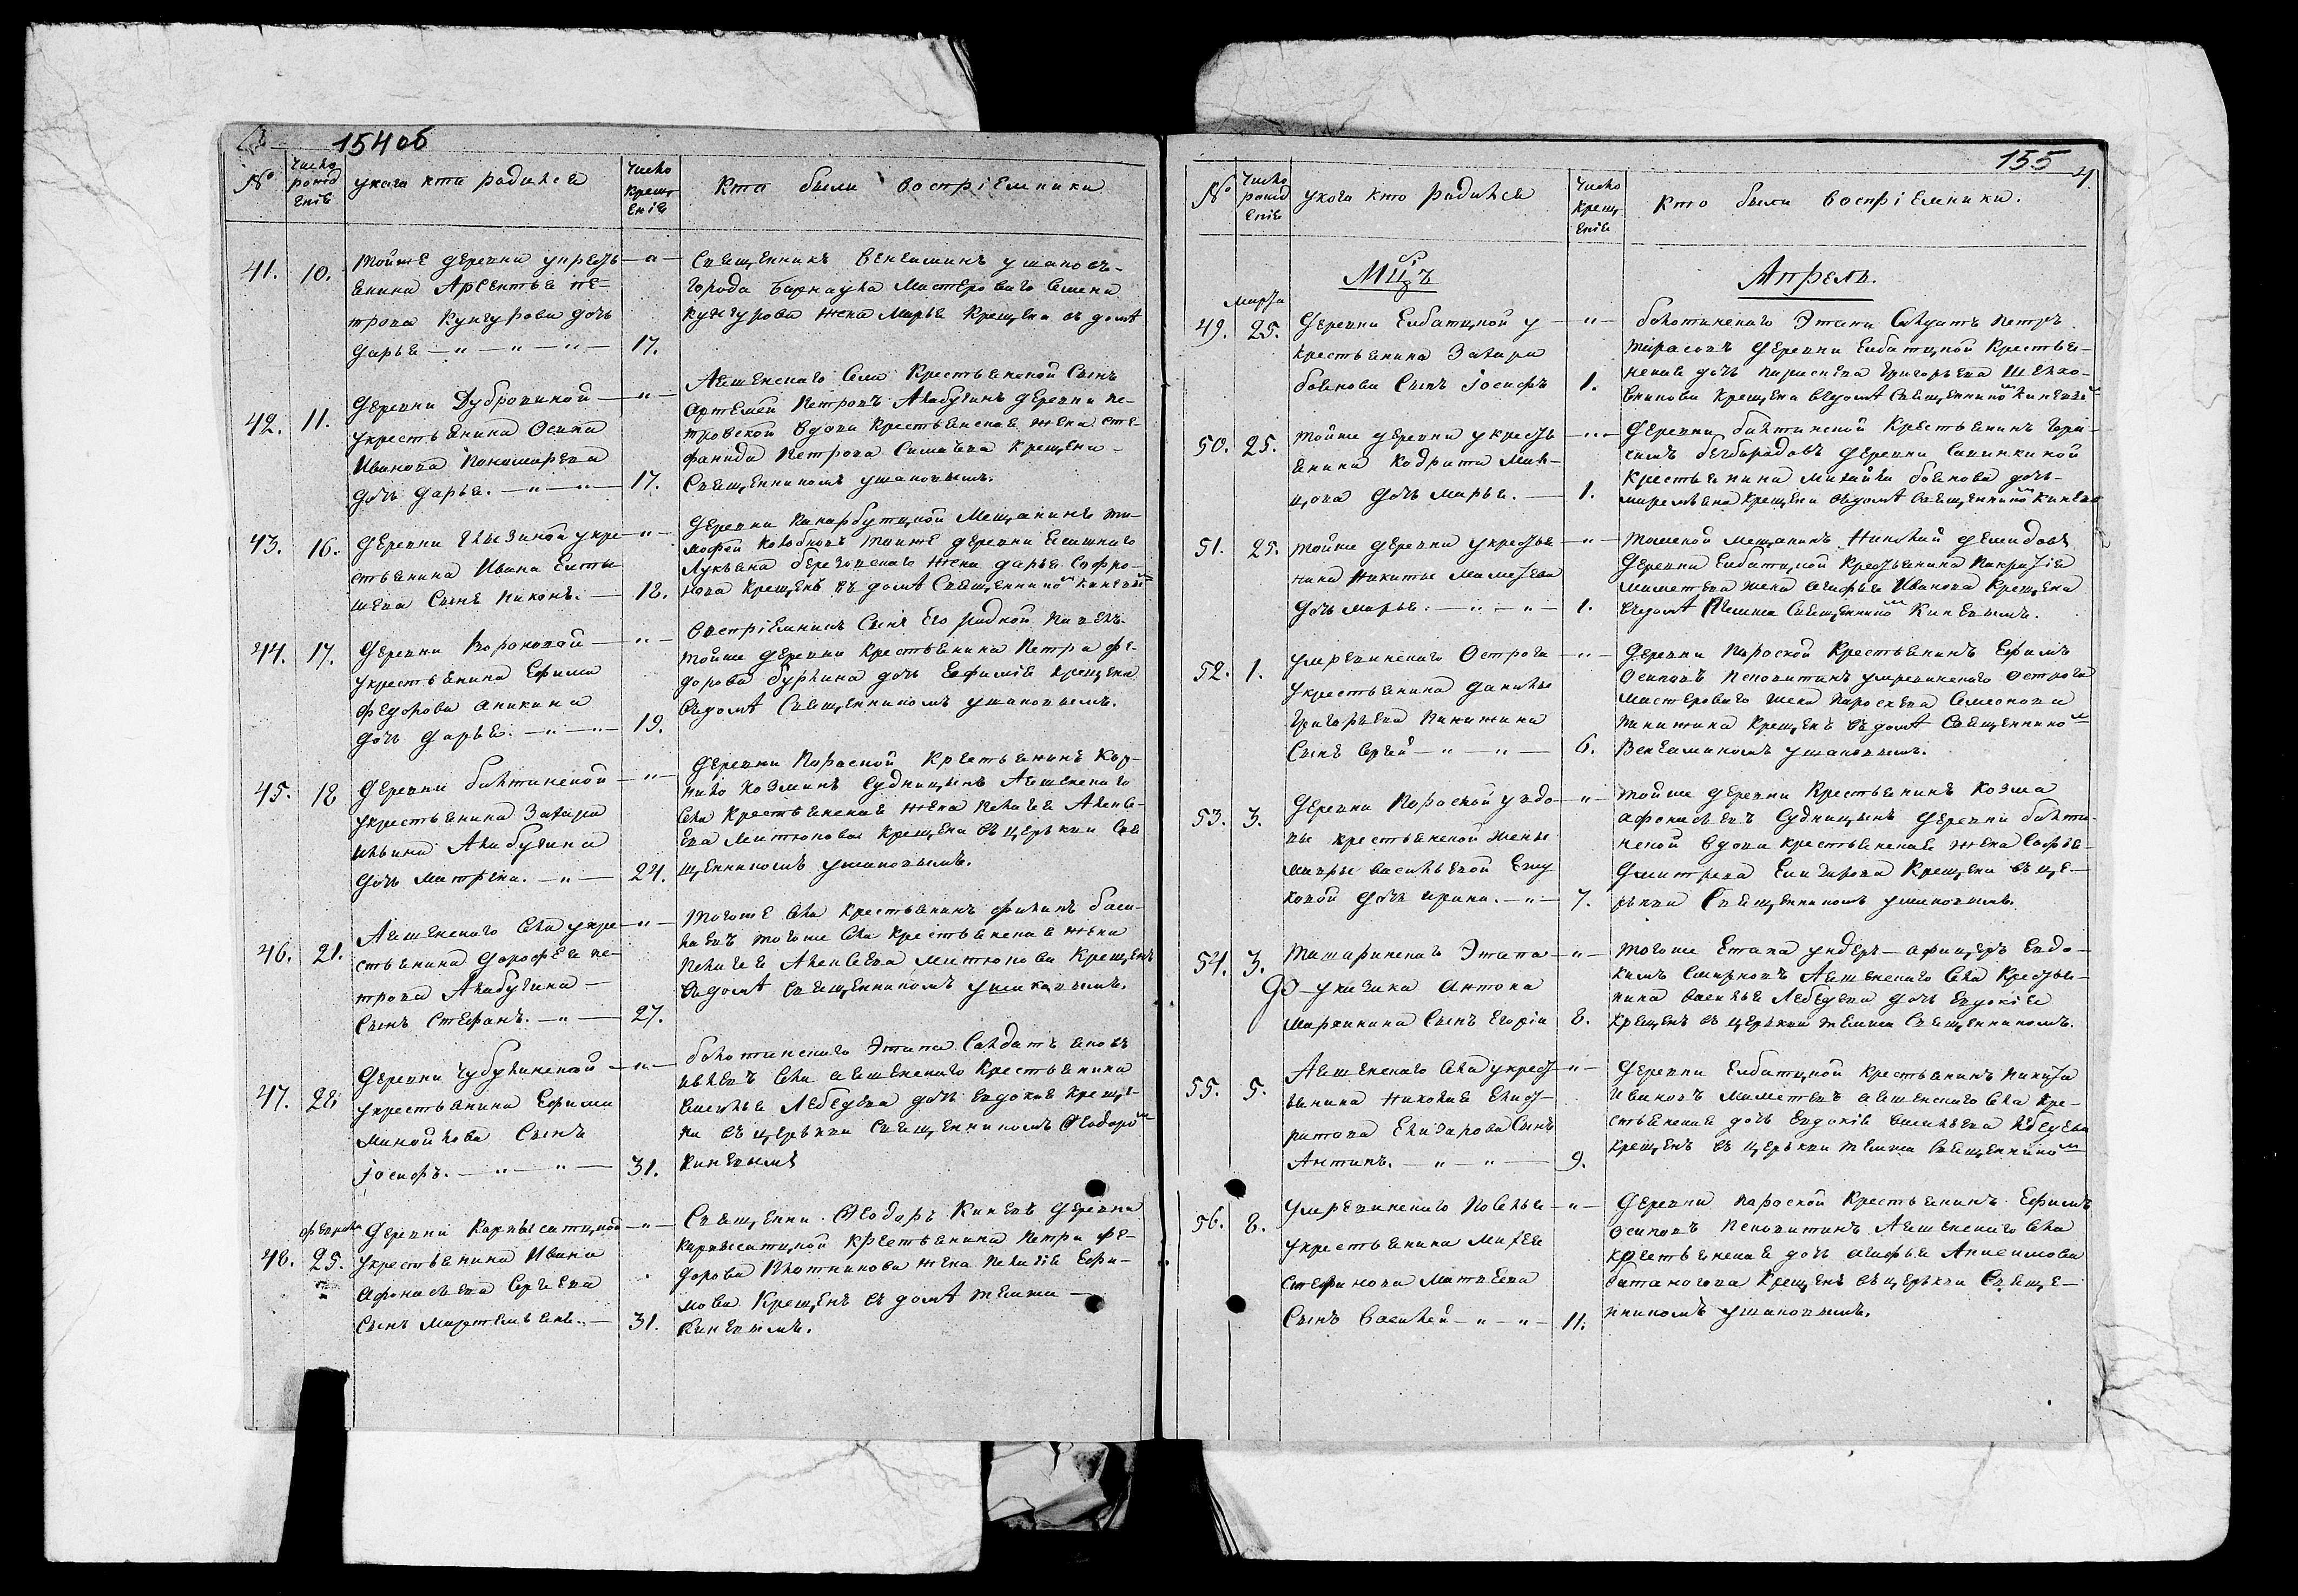 154 об
№
Число
рожд
енiе
у кого кто родился
Число
крещ
енiе
Кто были воспрiемники
41. 10. Тойже деревни у кресть
янина Арсентья Пе-
трова Кунгурова дочь
Дарья 17.
Священникъ Венiаминъ Ушаковъ
города Барнаула Мастероваго Семена
Кунгурова жена Марья Крещена въ домѣ
42. 11. Деревни Дубровиной
у крестьянина Осипа
Иванова Пономарева
дочь Дарья. 17.
Села Крестьянской Сынъ
Артемей Петровъ Алабугинъ деревни Пе-
тровской вдова Крестьянская жена Сте-
фанида Петрова Крещена
Священникомъ Ушаковымъ.
43. 16. Деревни у кре
стьянина Ивана Елты
шева Сынъ Никонъ. 18.
Деревни Мещанинъ Ти-
мофей Колобовъ тояже деревни
Лукьяна жена Дарья Софро-
нова Крещенъ въ домѣ Священником Киневым
44. 17. Деревни Вороновой
у крестьянина Ефима
Федорова Аникина
дочь Дарья. 19.
Воспрiемникъ Сынъ Его родной
тойже деревни Крестьянина Петра Фе-
дорова Бурлина дочь Евфимiя крещена
въ домѣ Священникомъ Ушаковымъ.
45. 18 Деревни Балтинской
у крестьянина Захара
Ильина Алабугина
дочь Матрена. 24.
Деревни Паросной Крестьянинъ Кор-
нило Козминъ Судницынъ
Села Крестьянская жена Пелагея Алексе-
ева Митюкова Крещена въ церькви Свя
щенникомъ Ушаковымъ.
46. 21. Села у кре
стьянина Дорофея Пе-
трова Алабугина
Сынъ Стефанъ. 27.
Тогоже Села Крестьянинъ Филипъ Васи-
льевъ тогоже Села Крестьянская жена
Пелагея Алексеева Митюкова Крещенъ
въ домѣ Священникомъ Ушаковымъ.
47. 28 Деревни Чубулинской
у крестьянина Ефима
Манойлова Сынъ
Iосифъ. 31.
Болотинскаго Этапа Салдатъ Яковъ
Села Крестьянина
Василья Лебедева дочь Евдокiя Креще-
на въ церькви Священникомъ Феодором
Киневымъ
Февраля
48. 25. Деревни Карпысатцкой
у крестьянина Ивана
Афонасьева Сергеева
Сынъ Мартемьянъ. 31.
Священни. Феодоръ Киневъ деревни
Карпысатцкой Крестьянина Петра Фе-
дорова Плотникова жена Пелагiя Ефи-
мова. Крещенъ въ домѣ темже
Киневымъ.
155
4
№
Число
рожд
енiе
у кого кто родился
Число
крещ
енiе
Кто были воспрiемники.
Мцъ Апрель.
Марта
49. 25. Деревни Елбатцкой у
крестьянина Захара
Боянова Сынъ Iосифъ 1.
Болотинскаго Этапа Салдатъ Петръ
Тарасовъ деревни Елбатцкой Крестья-
нская дочь Параскева Григорьева Шелко-
вникова Крещена въ домѣ Священником Киневым
50. 25. Тойже деревни у кресть
янина Кодрата Мал-
цова дочь Марья. 1.
Деревни Балтинской Крестьянинъ Гера-
симъ Безбородовъ деревни Савинкиной
Крестьянина Михайла Боянова дочь
Маремьяна Крещена въ домѣ Священником Киневым
51. 25. Тойже деревни у крестья
нина Никиты Маметева
дочь Марья. 1.
Томской Мещанинъ Николай Демидовъ
Деревни Елбатцкой Крестьянина
Маметева жена Агафья Иванова Крещена
въ домѣ темже Священником Киневымъ.
52. 1. Умревинскаго Острога
у крестьянина Данилы
Григорьева Паникина
Сынъ Сергей 6.
Деревни Паросной Крестьянинъ Ефимъ
Осиповъ Неповитинъ Умревинскаго Острога
Мастероваго жена Параскева Семенова
Паникина Крещенъ въ домѣ Священником
Венiаминомъ Ушаковымъ.
53. 3. Деревни Поросной у вдо-
вы крестьянской жены
Мавры Васильевой
дочь Ирина. 7.
Тойже деревни Крестьянинъ Козма
Афонасьевъ Судницынъ деревни Балти-
нской вдова крестьянская жена Софья
Дмитрева Елизарова Крещена въ це-
рькви Священникомъ Ушаковымъ.
54. 3. Ташаринскаго Этапа
у казака Антона
Сынъ Егорiй 8.
Тогоже Етапа ундеръ-афицеръ Евдо-
кимъ Смирновъ Села Крестья-
нина Василья Лебедева дочь Евдокiя
Крещенъ въ церькви темже Священникомъ.
55. 5. Села у крест
ьянина Николая
Елизарова Сынъ
Антипъ. 9.
Деревни Елбатцкой Крестьянинъ Никита
Ивановъ Маметевъ Села Кре-
стьянская дочь Евдокiя Васильева Лебедева
Крещенъ въ церькви темже Священником
56. 8. Умревинскаго Поселья
у крестьянина Михея
Стефанова Матвеева
Сынъ Василей 11.
Деревни Паросной Крестьянинъ Ефимъ
Осиповъ Неповитинъ Села
Крестьянская дочь Агафья Анисимова
Батаногова Крещенъ въ церькви Священ-
нникомъ Ушаковымъ.